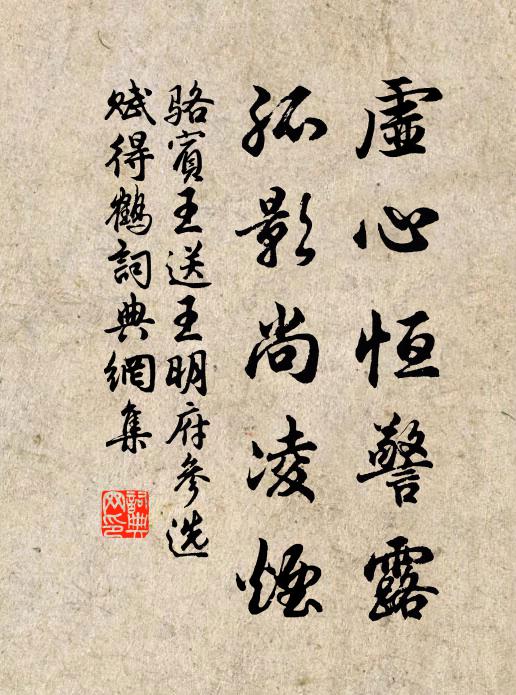 虛心恒警露
孤影尚凌煙
駱賓王送王明府參選
賦得鶴詞典網集
詞典
网印